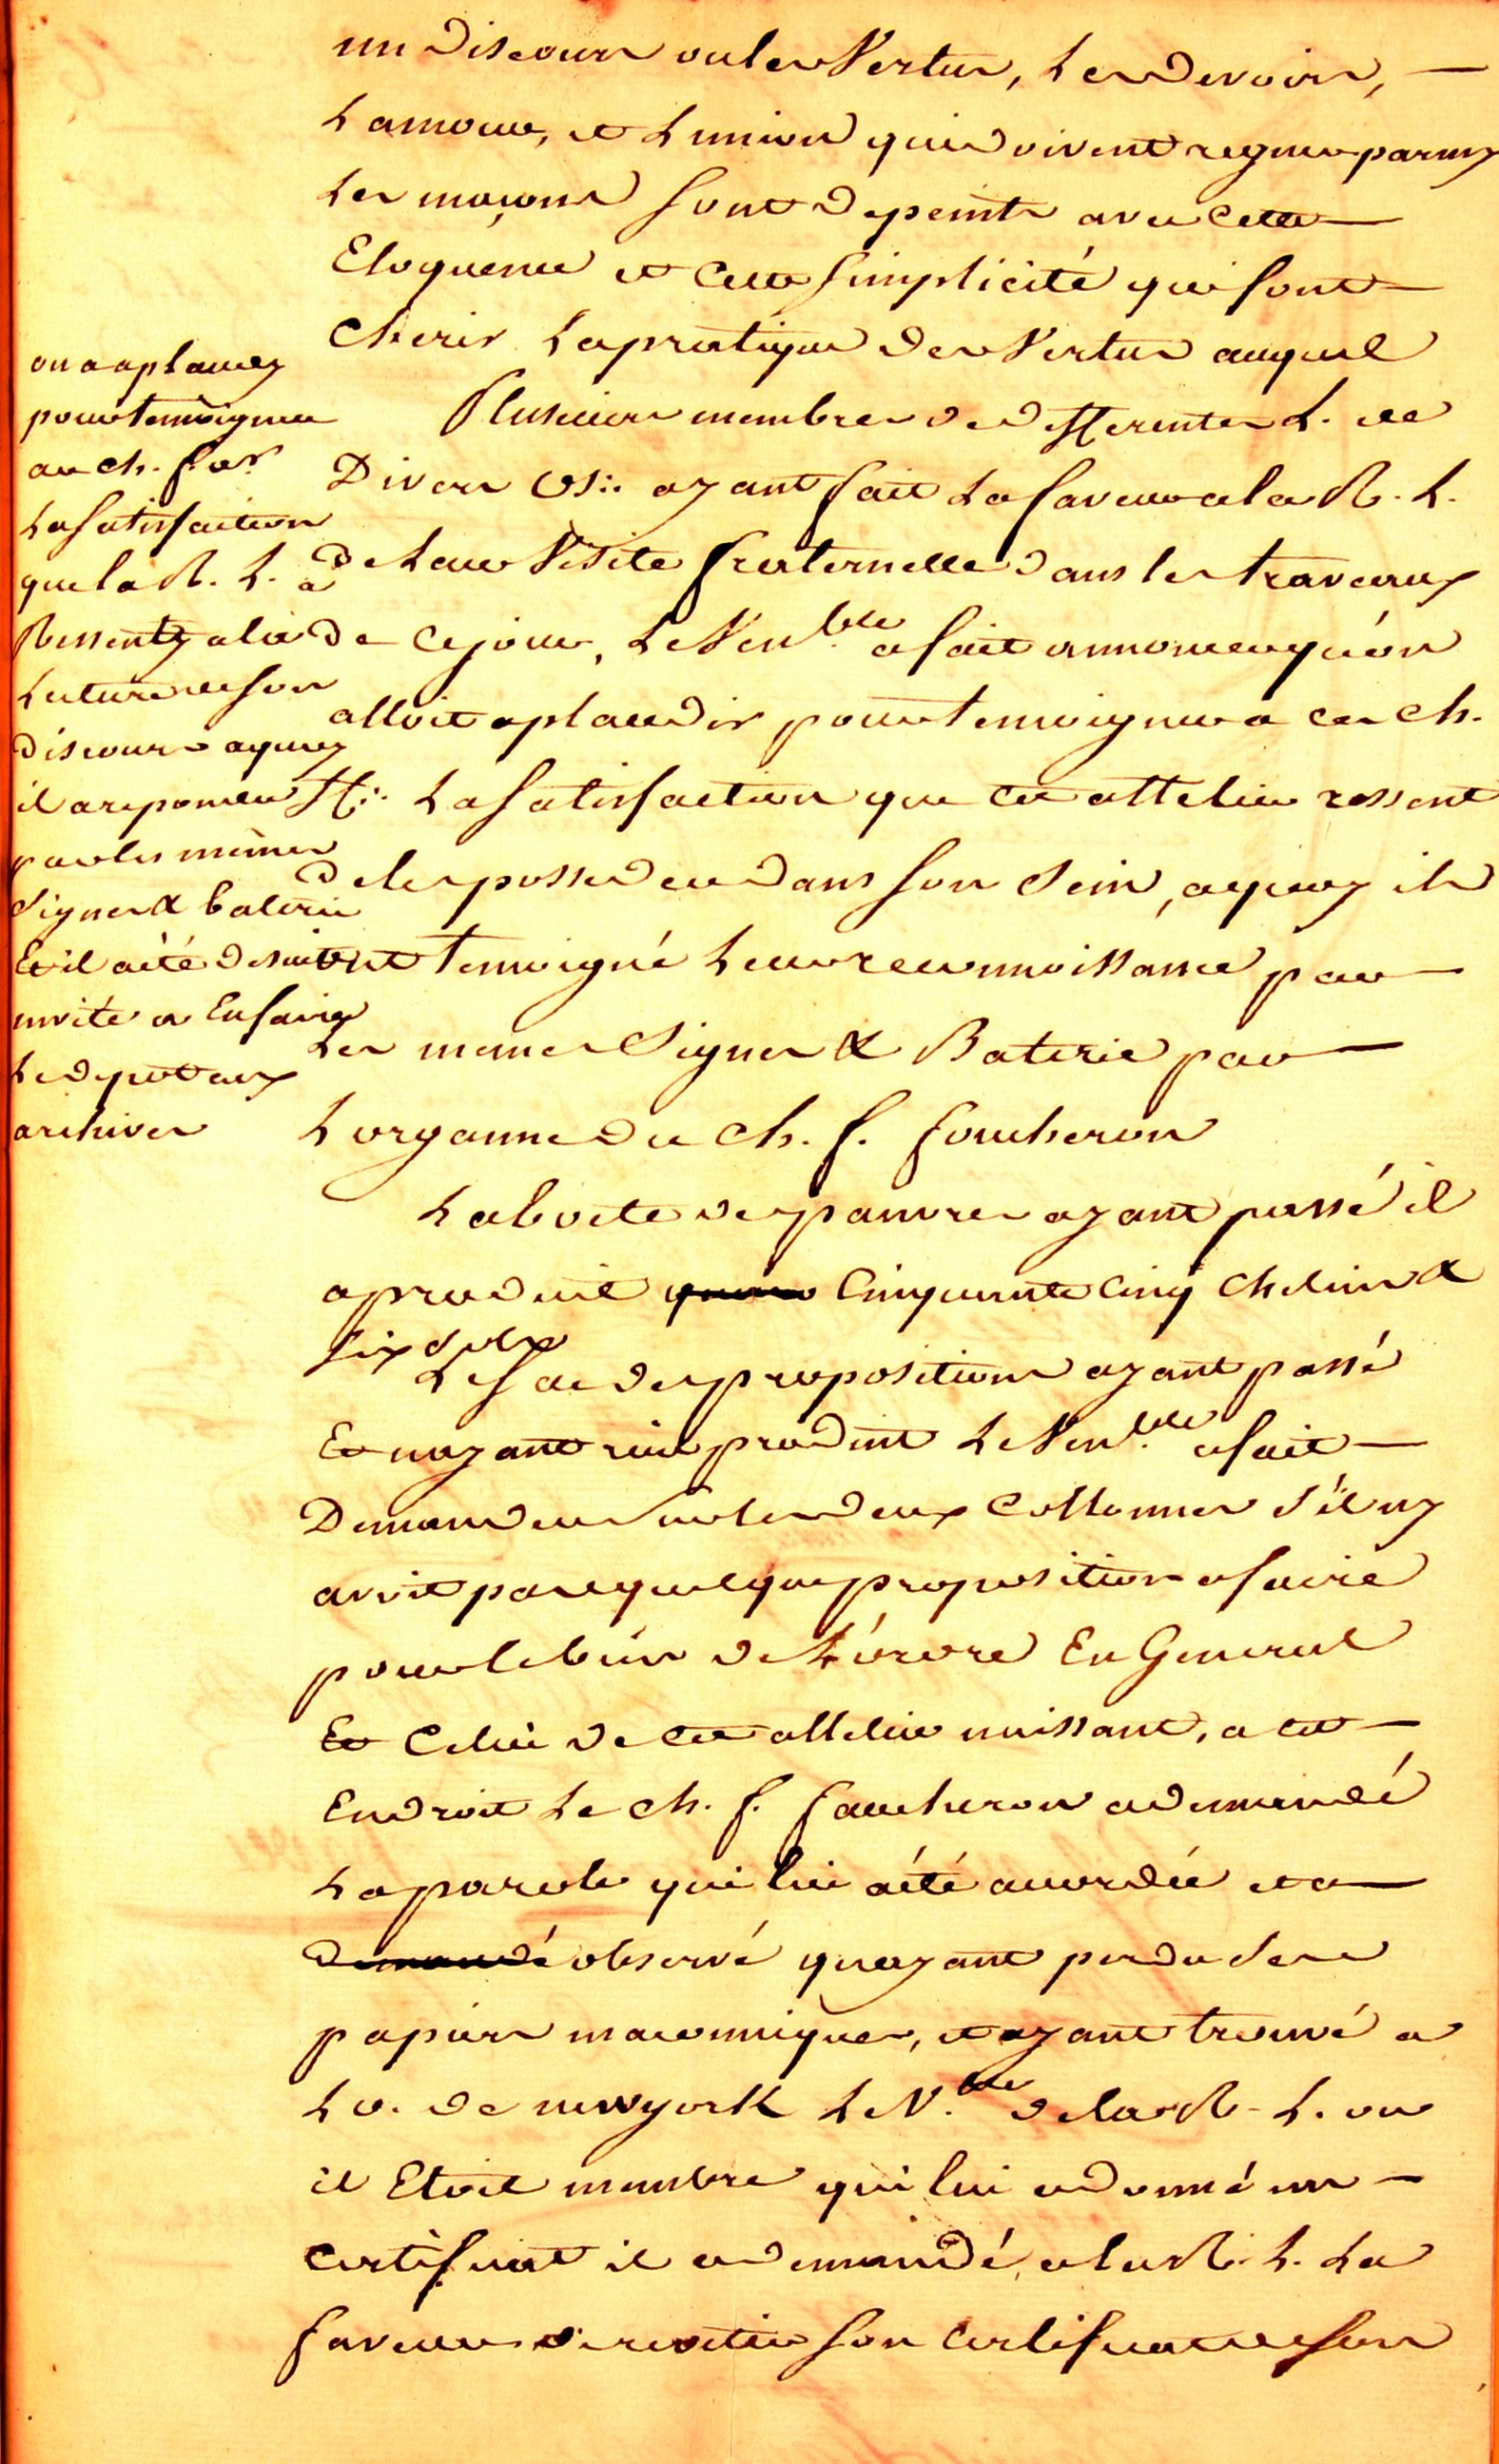 un Discours ou les Vertus, Les Devoirs,
L'amour, et L'union qui doivent regner parmy
Les maçons sont Depeints avec Cette
Eloquence et Cette Simplicité qui font
Cherir La pratique des Vertus auquel
on a aplaudy
pour temoigner
au ch. f. or
La Satisfaction
que la R. L. a
Ressenty a la
Lecture de son
discours apres
il a repondu
par les mêmes
Signes & baterie
Et il a été de suite
invité a En faire
Le depot aux
archives
Plusieurs membres de differentes L. de
Divers O∴ ayant fait La faveur a la R. L.
de Leur Visite fraternelle dans les travaux
de Ce jour, Le Ven.ble a fait annoncer qu'on
alloit aplaudir pour temoigner a ces ch.
ff∴ La Satisfaction que cet attelier ressent
de les posseder dans son Sein, apres ils
ont temoigné Leur reconnoissance par
Les memes Signes & Baterie par
L'organne du Ch. f. foucheron
La boete des pauvres ayant passé il
a produit Cinquante Cinq Chelins &
six sols
Le sac des propositions ayant passé
Et n'ayant rien produit Le Ven.ble a fait
Demander sur les deux Collonnes S'il ny
avoit pas quelque proposition a faire
pour le bien de L'ordre En General
Et Celui de cet attelier naissant, a cet
Endroit Le ch. f. faucheron a demandé
La parole qui lui a été accordée et a
demandé observé qu'ayant perdu Ses
papiers maconniques, et ayant trouvé a
L'o. de newyork Le V.ble de la R. L. ou
il Etoit membre qui lui a donné un
Certificat il a demandé a la R. L. La
faveur de revetir son Certificat de son